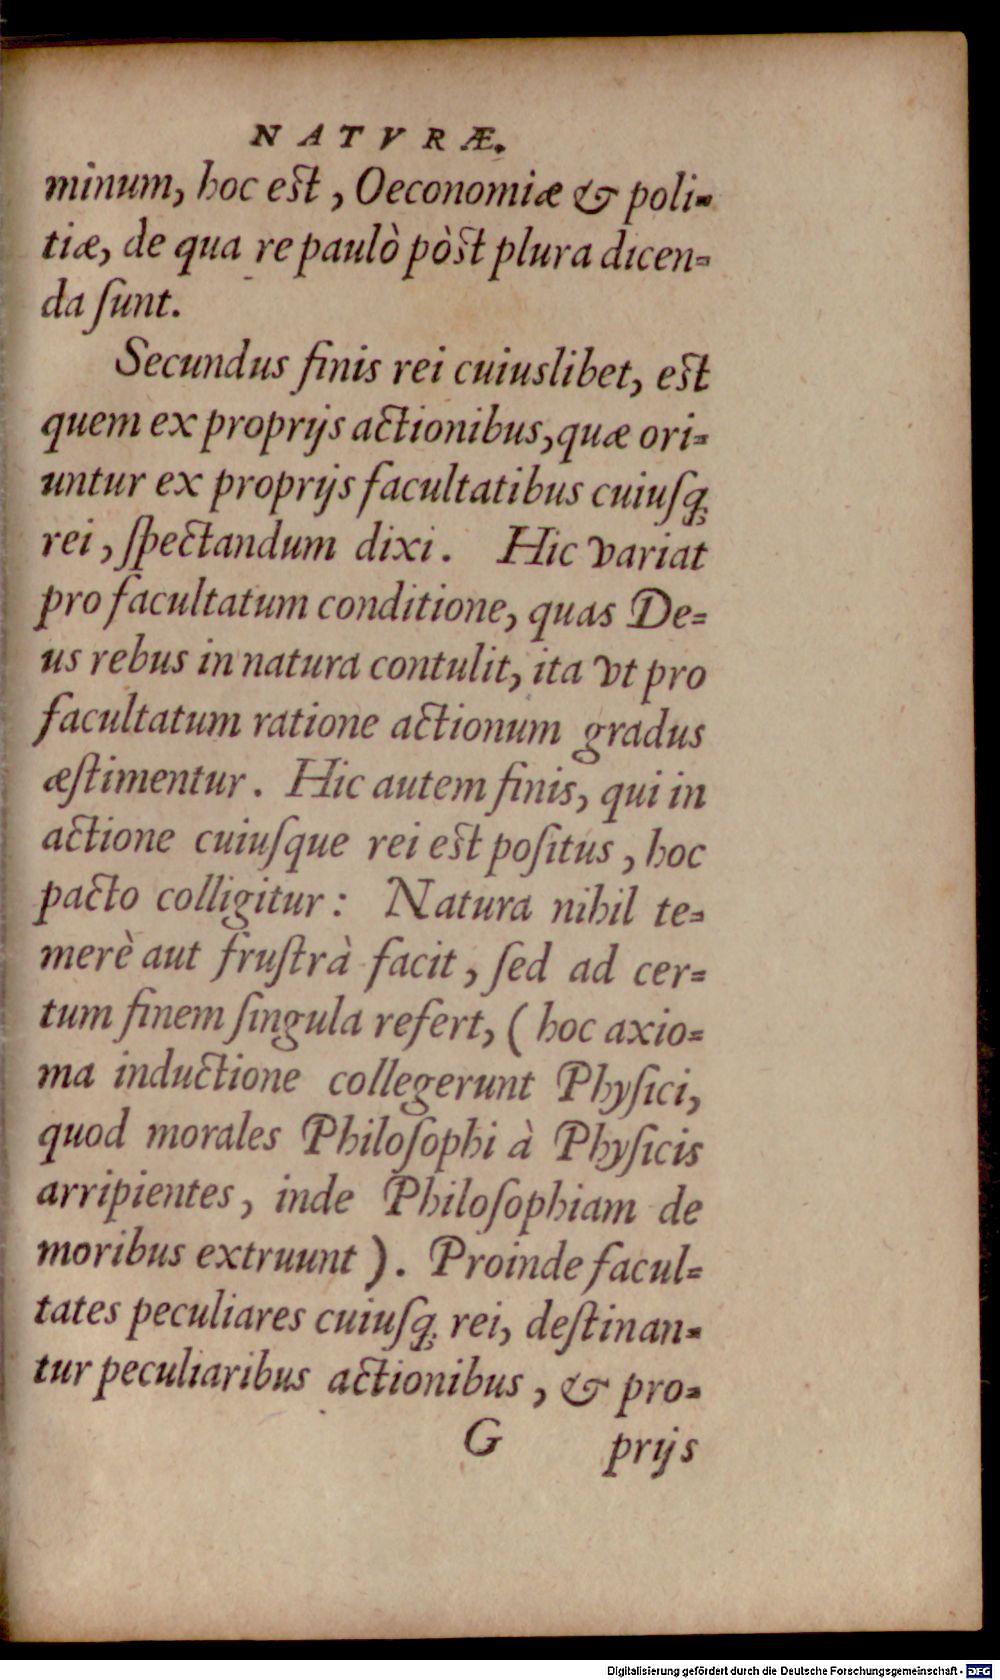 NATVRÆ.
minum, hoc est, Oeconomiæ & poli-
tiæ, de qua re paulò pòst plura dicen-
da ſunt.
Secundus finis rei cuiuslibet, est
quem ex proprijs actionibus, quæ ori-
untur ex proprijs facultatibus cuiuſq;
rei, ſpectandum dixi. Hic variat
pro facultatum conditione, quas De-
us rebus in natura contulit, ita vt pro
facultatum ratione actionum gradus
æſtimentur. Hic autem finis, qui in
actione cuiuſque rei est poſitus, hoc
pacto colligitur: Natura nihil te-
merè aut fruſtrà facit, ſed ad cer-
tum finem ſingula refert, (hoc axio-
ma inductione collegerunt Phyſici,
quod morales Philoſophi à Phyſicis
arripientes, inde Philoſophiam de
moribus extruunt). Proinde facul-
tates peculiares cuiuſq; rei, deſtinan-
tur peculiaribus actionibus, & pro-
G prijs
Digitalisierung gefördert durch die Deutsche Forschungsgemeinschaft - DFG